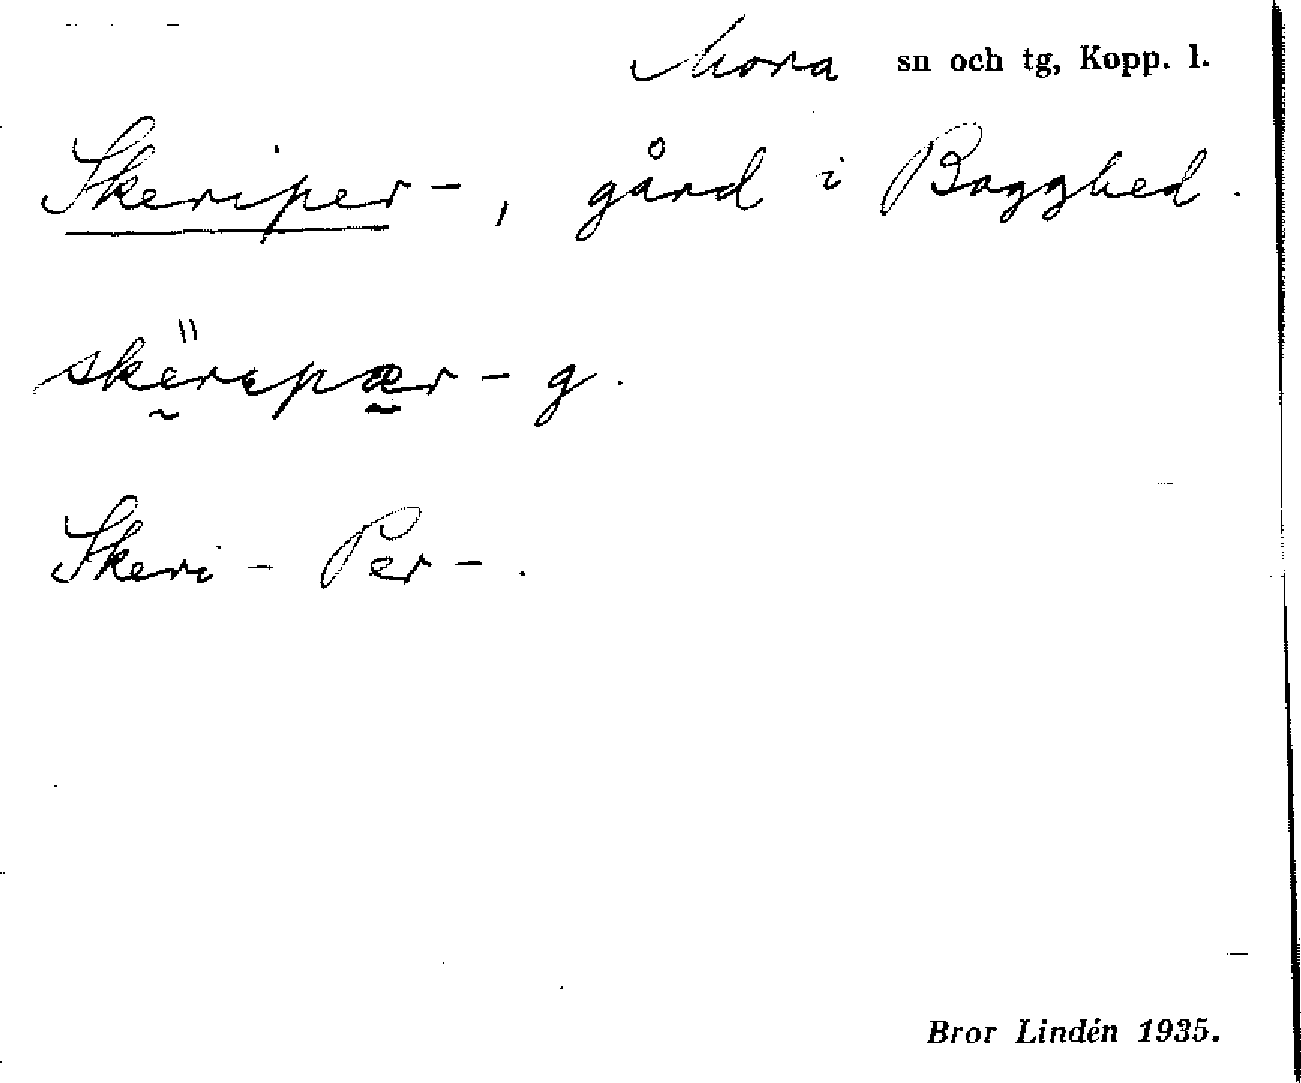 Mora sn och tg, Kopp. l.
Skeriper-, gård i Bogghed.
skëripær-g.
Skeri-Per-.
Bror Lindén 1935.